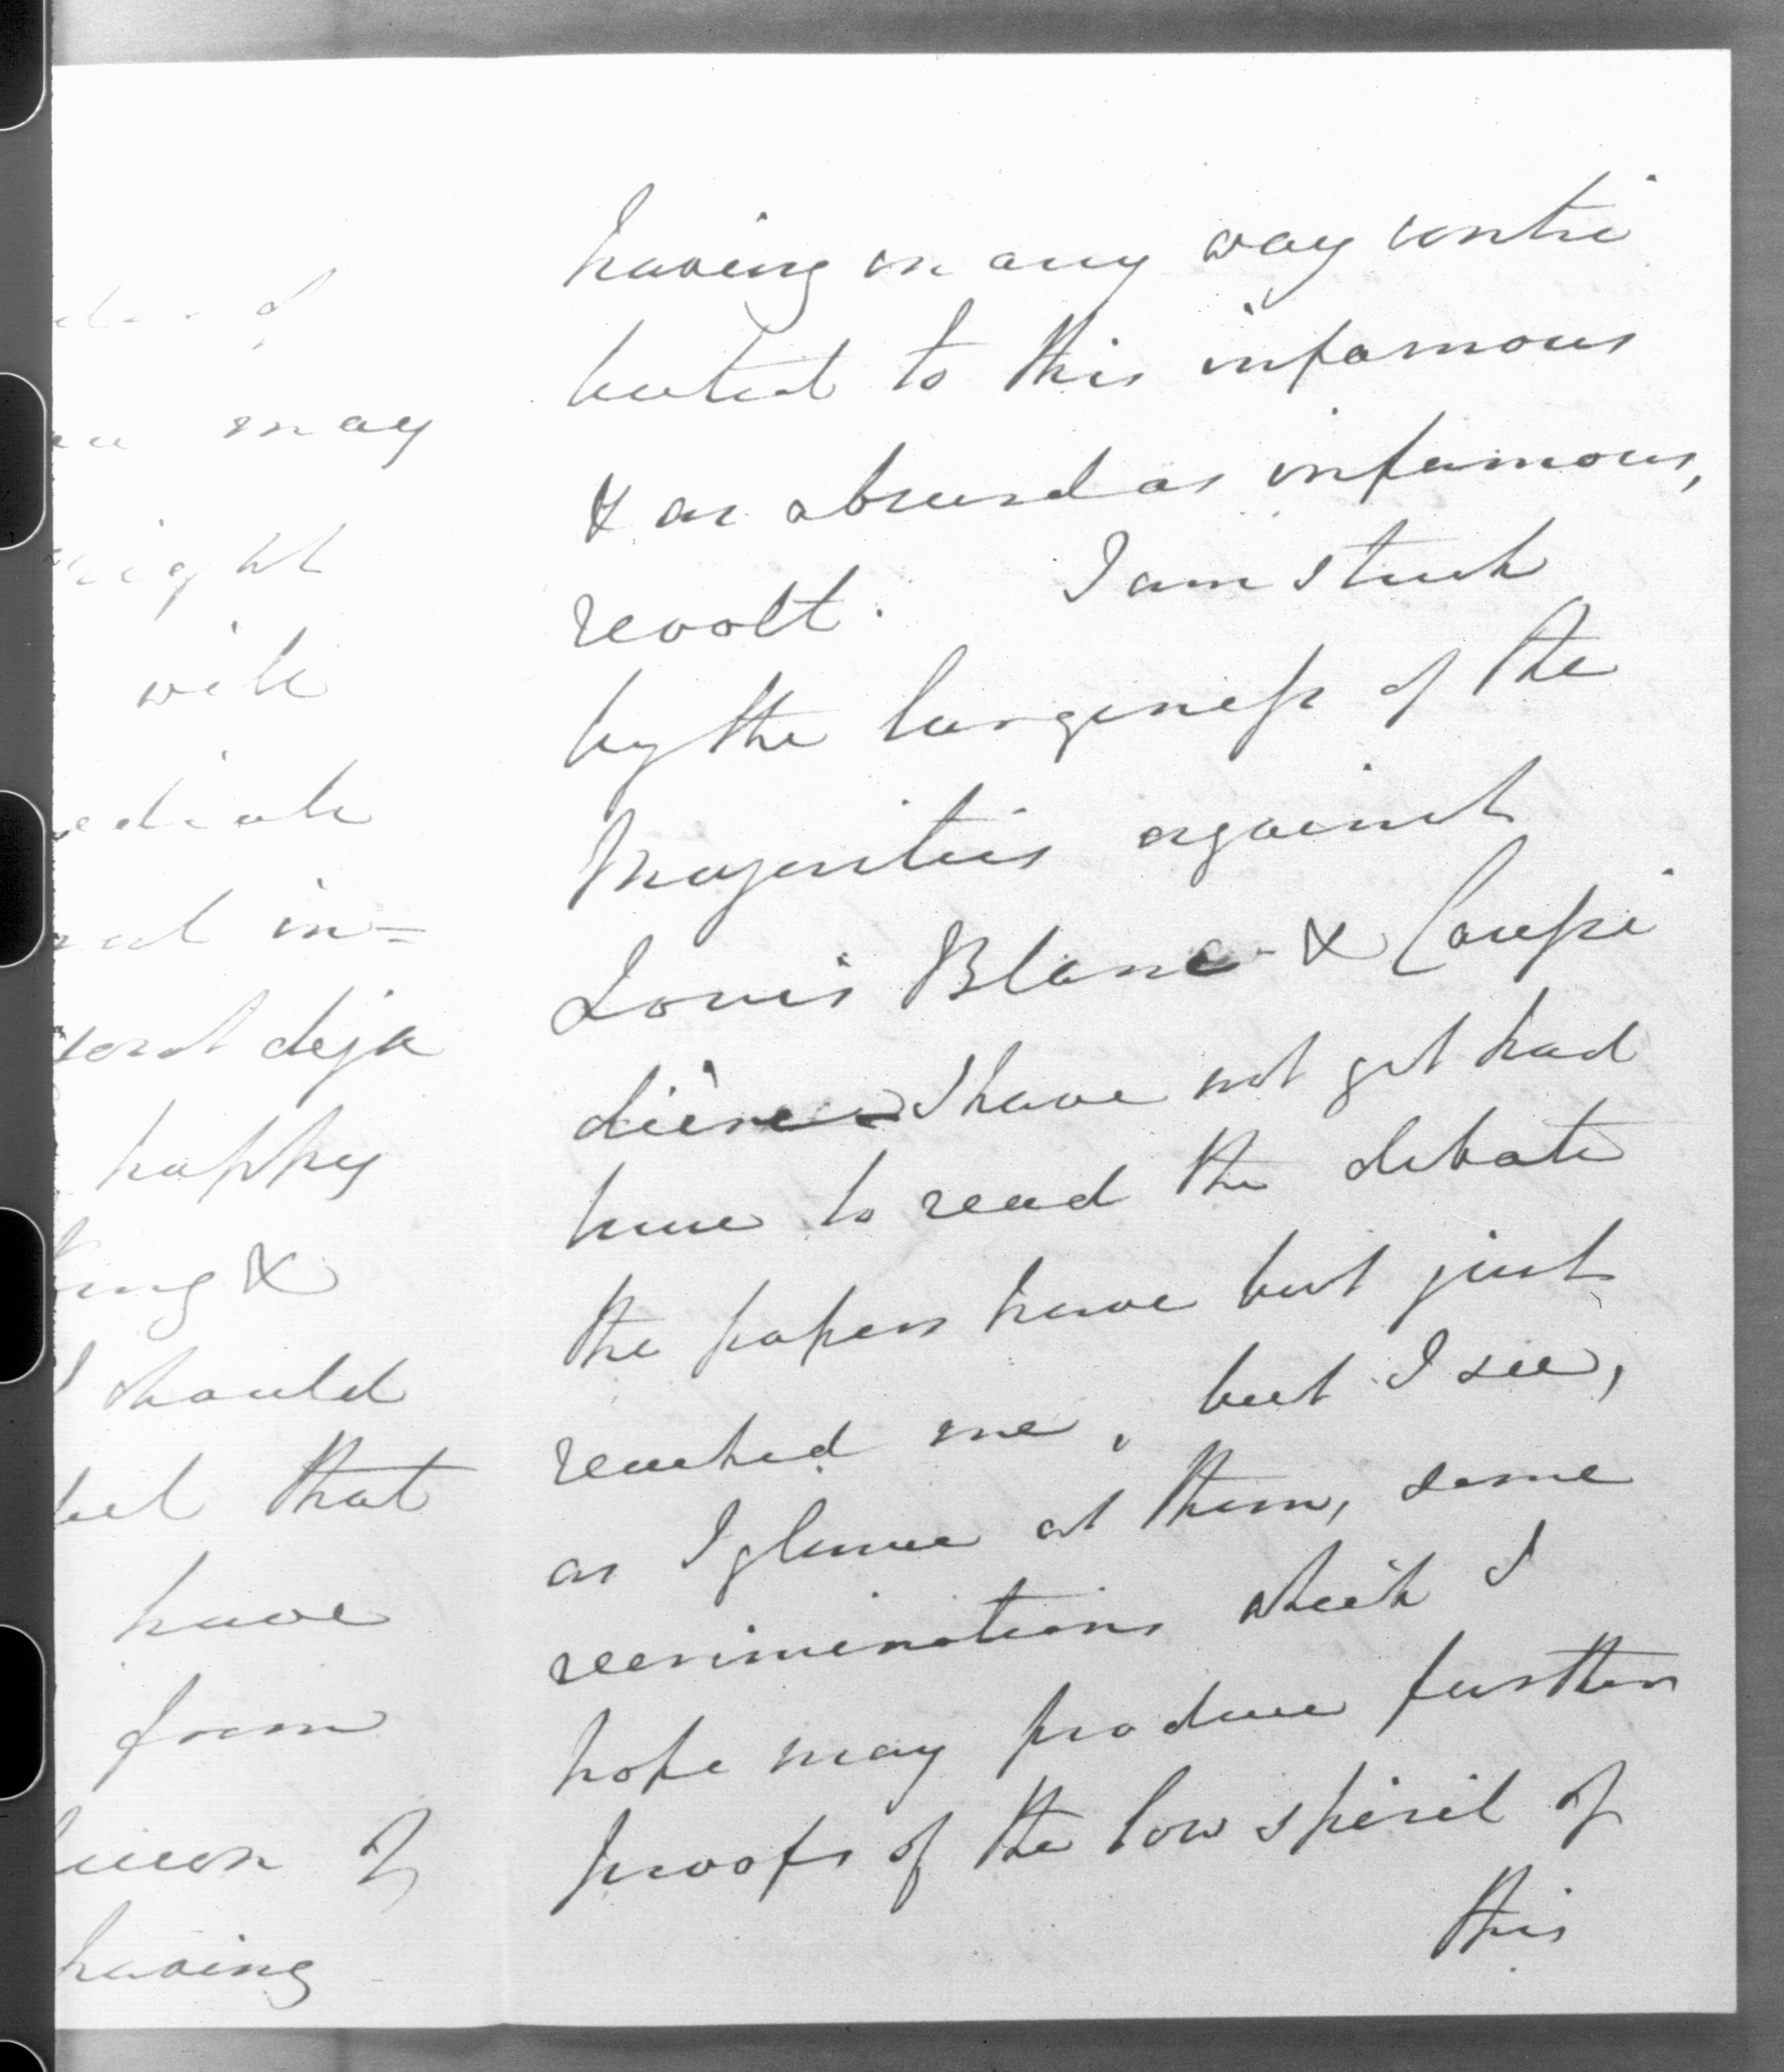 may
will
in=
deja
happy
&
should
that
have
from
of
having
having in any way contri
buted to this infamous
& as absurd as infamous,
revolt. I am struck
by the largeness of the
Majorities against
Louis Blanc & Caussi
dière I have not yet had
time to read the debate
the papers have but just
reached me, but I see,
as I glance at them, some
recriminations which I
hope may produce further
proofs of the low spirit of
this